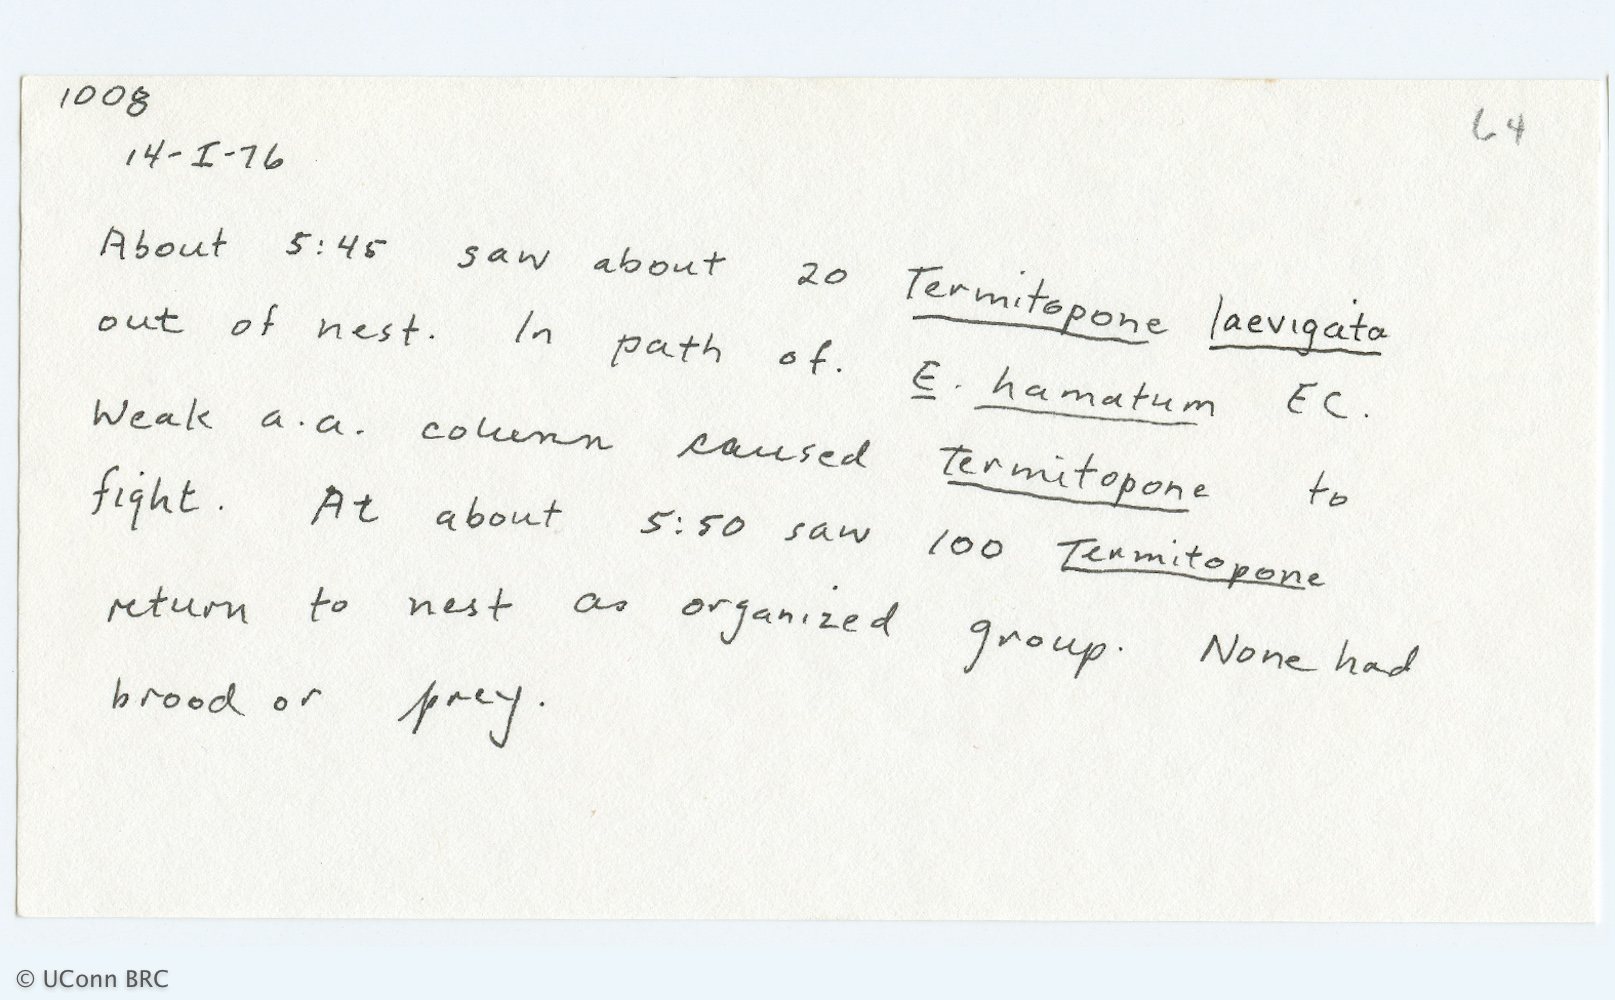 1008
64
14-I-76
About 5:45 saw about 20 Termitopone laevigata
out of nest. In path of. E. hamatum EC.
Weak a.a. column caused Termitopone to
fight. At about 5:50 saw 100 Termitopone
return to nest as organized group. None had
brood or prey.
© UConn BRC